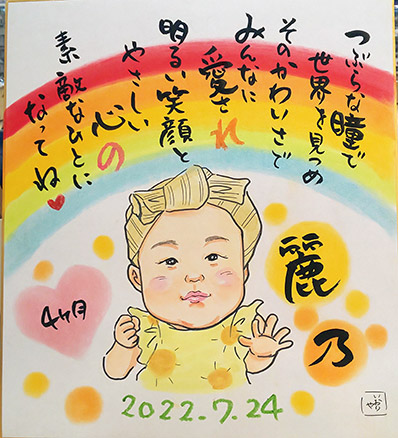 つぶらな瞳で
世界を見つめ
そのかわいさで
みんなに
愛され
明るい笑顔と
やさしい
心の
素敵なひとに
なってね♥
麗
乃
4ヶ月
2022.7.24